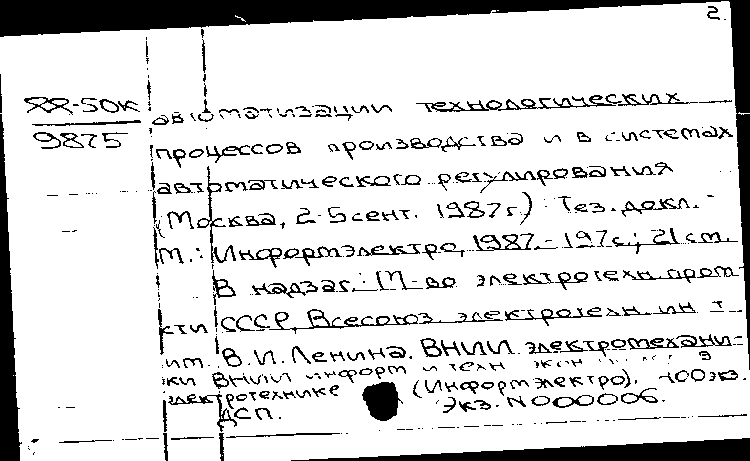 2.
88-50К
9875
автоматизации технологических
процессов производства и в системах
автоматического регулирования
(Москва, 2-5 сент. 1987г.): Тез. докл. -
М.: Информэлектро, 1987. - 197с.; 21 см.
В надзаг.: М-во электротехн. пром-
сти СССР, Всесоюз. электротехн. ин-т
им. В.И. Ленина. ВНИИ электромехани-
ки ВНИИ информ и техн экон
электротехнике (Информэлектро). 400 экз.
ДСП. Экз. N000006.